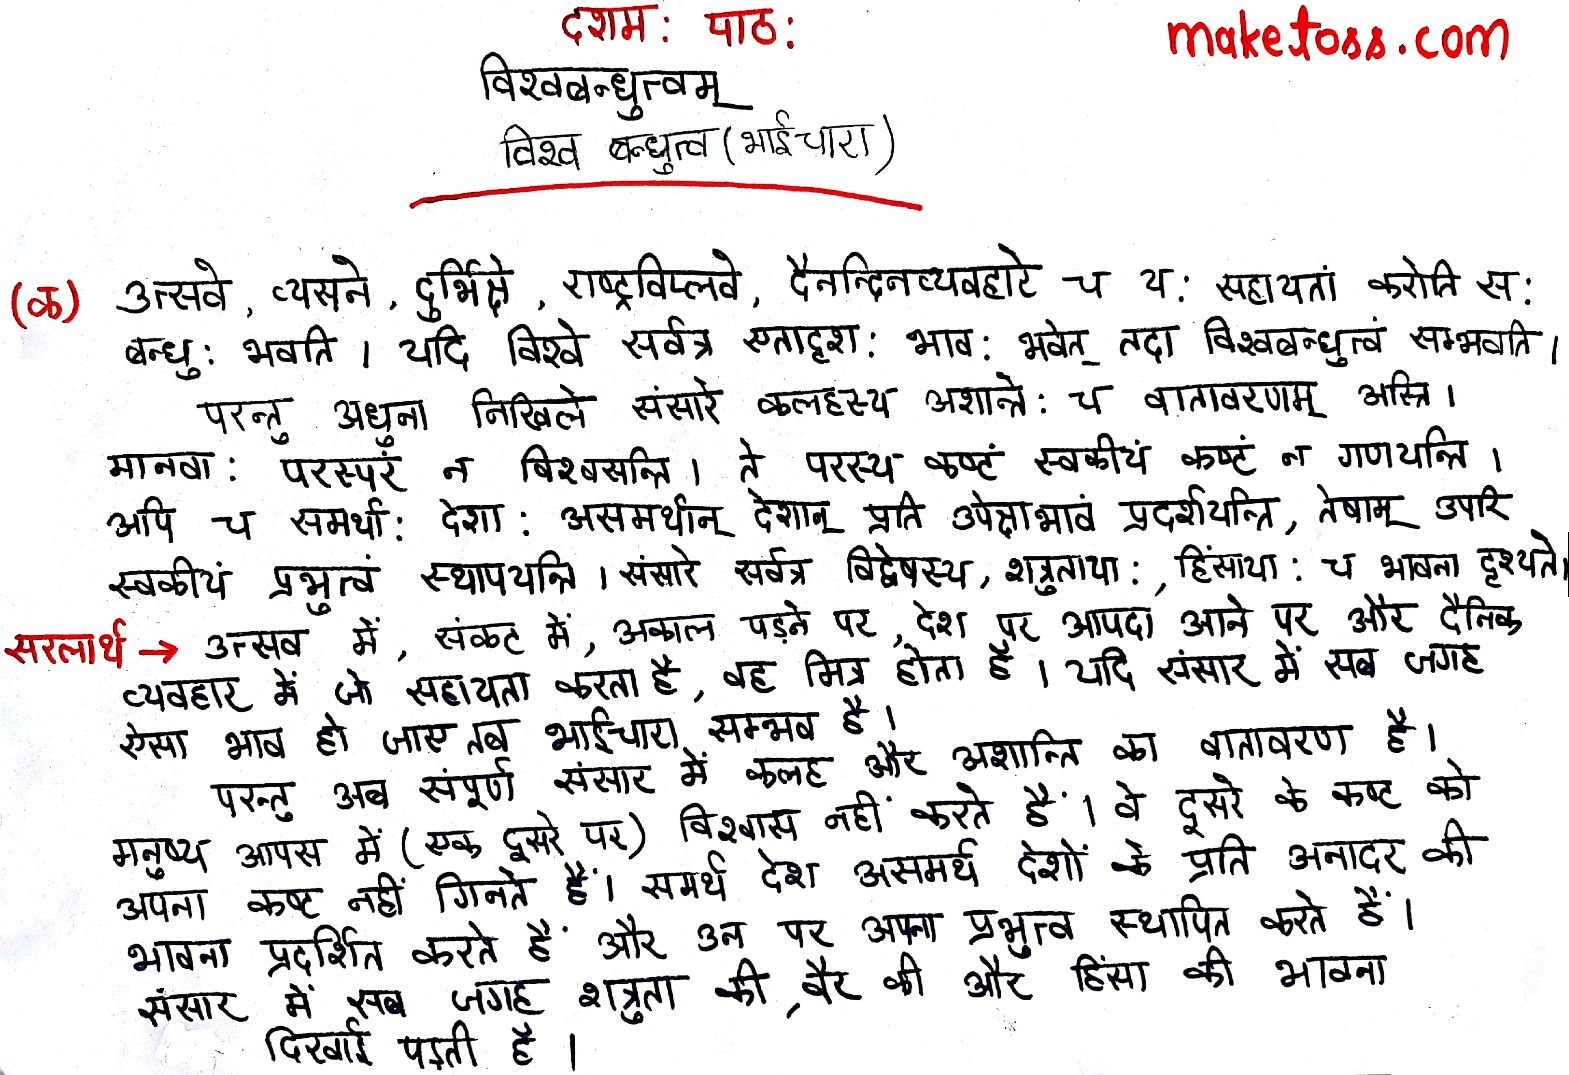 दशम: पाठ:
maketoss.com
विश्वबन्धुत्वम्
विश्व बन्धुत्व (भाईचारा)
(क) उत्सवे, व्यसने, दुर्भिक्षे, राष्ट्रविप्लवे, दैनन्दिनव्यवहारे च य: सहायतां करोति स:
बन्धु: भवति । यदि विश्वे सर्वत्र एतादृश: भाव: भवेत् तदा विश्वबन्धुत्वं सम्भवति ।
परन्तु अधुना निखिले संसारे कलहस्य अशान्ते: च वातावरणम् अस्ति ।
मानवा: परस्परं न विश्वसन्ति । ते परस्य कष्टं स्वकीयं कष्टं न गणयन्ति ।
अपि च समर्था: देशा: असमर्थान् देशान् प्रति उपेक्षाभावं प्रदर्शयन्ति, तेषाम् उपरि
स्वकीयं प्रभुत्वं स्थापयन्ति । संसारे सर्वत्र विद्वेषस्य, शत्रुताया:, हिंसाया: च भावना दृश्यते।
सरलार्थ → उत्सव में, संकट में, अकाल पड़ने पर, देश पर आपदा आने पर और दैनिक
व्यवहार में जो सहायता करता है, वह मित्र होता है । यदि संसार में सब जगह
ऐसा भाव हो जाए तब भाईचारा सम्भव है ।
परन्तु अब संपूर्ण संसार में कलह और अशान्ति का वातावरण है ।
मनुष्य आपस में (एक दूसरे पर) विश्वास नहीं करते हैं । वे दूसरे के कष्ट को
अपना कष्ट नहीं गिनते हैं । समर्थ देश असमर्थ देशों के प्रति अनादर की
भावना प्रदर्शित करते हैं और उन पर अपना प्रभुत्व स्थापित करते हैं ।
संसार में सब जगह शत्रुता की, वैर की और हिंसा की भावना
दिखाई पड़ती है ।